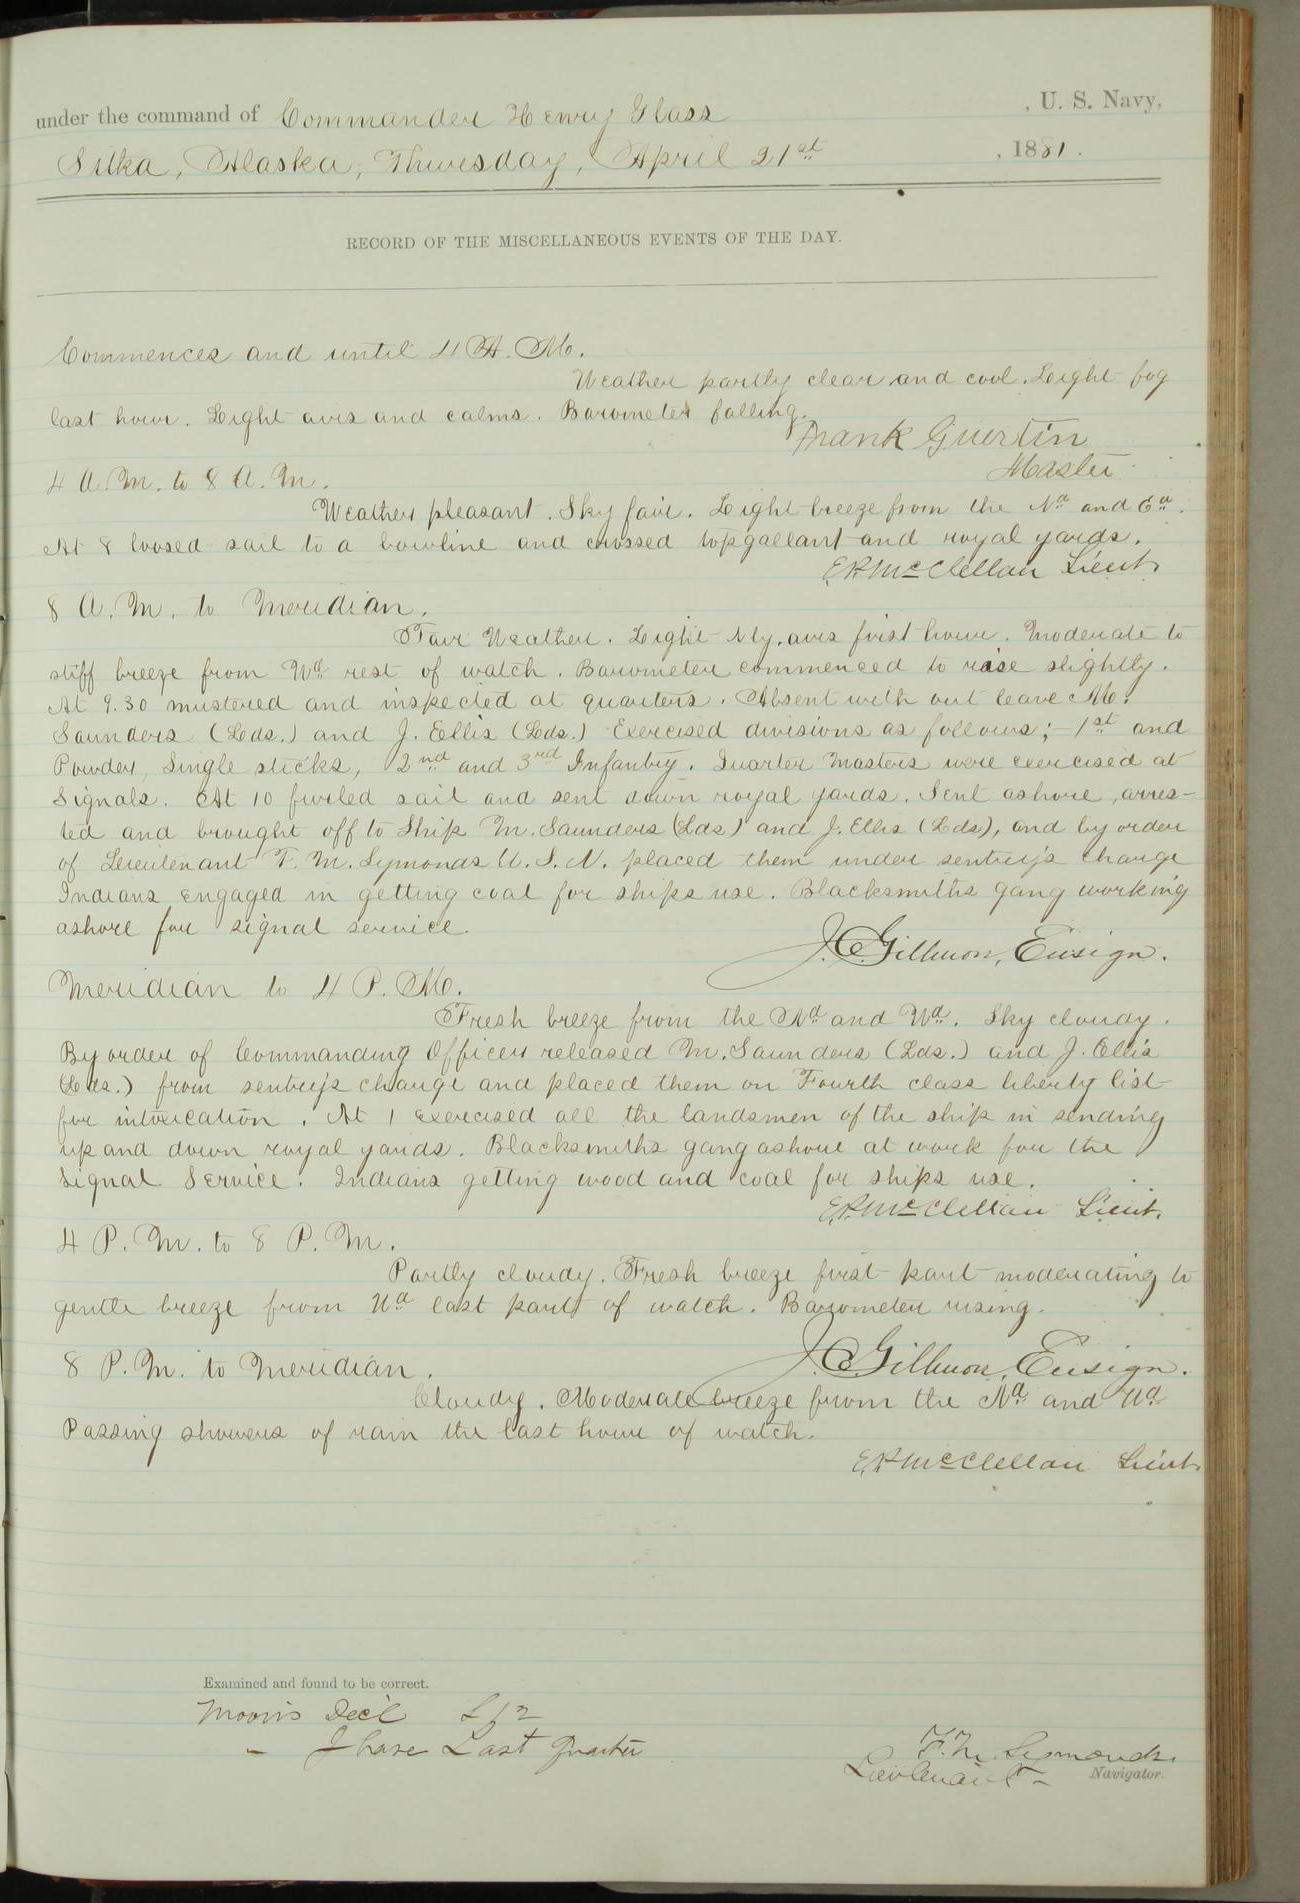 under the command of Commander Henry Glass , U. S. Navy,
Sitka, Alaska, Thursday, April 21st , 1881.
RECORD OF THE MISCELLANEOUS EVENTS OF THE DAY.
Commences and until 4 A.M.
Weather partly clear and cool. Light fog
last hour. Light airs and calms. Barometer falling.
Frank Guertin
Master
4 A.M. to 8 A.M.
Weather pleasant. Sky fair. Light breeze from the Nd and Ed.
At 8 loosed sail to a bowline and crossed topgallant and royal yards.
E.P. McClellan Lieut.
8 A.M. to Meridian.
Fair Weather. Light Nly. airs first hour. Moderate to
stiff breeze from Wd rest of watch. Barometer commenced to rise slightly.
At 9.30 mustered and inspected at quarters. Absent with out leave M.
Saunders (Lds.) and J. Ellis (Lds.) Exercised divisions as follows; - 1st and
Powder, Single sticks, 2nd and 3rd Infantry. Quarter Masters were exercised at
Signals. At 10 furled sail and sent down royal yards. Sent ashore, arres-
ted and brought off to Ship M. Saunders (Lds) and J. Ellis (Lds), and by order
of Lieutenant F. M. Symonds U.S.N. placed them under sentry's charge
Indians engaged in getting coal for ships use. Blacksmiths gang working
ashore for signal service.
J.C. Gillmor, Ensign.
Meridian to 4 P.M.
Fresh breeze from the Nd and Wd. Sky cloudy.
By order of Commanding Officer released M. Saunders (Lds.) and J. Ellis
(Lds.) from sentry's charge and placed them on Fourth class liberty list
for intoxication. At 1 exercised all the landsmen of the ship in sending
up and down royal yards. Blacksmiths gang ashore at work for the
Signal Service. Indians getting wood and coal for ships use.
E.P. McClellan Lieut.
4 P.M. to 8 P.M.
Partly cloudy. Fresh breeze first part moderating to
gentle breeze from Wd last part of watch. Barometer rising.
J.C. Gillmor, Ensign.
8 P.M. to Meridian.
Cloudy. Moderate breeze from the Nd and Wd
Passing showers of rain the last hour of watch.
E.P. McClellan Lieut.
Examined and found to be correct.
Moon's Decl
- Phase Last Quarter
F.M. Symonds.
Lieutenant - Navigator.